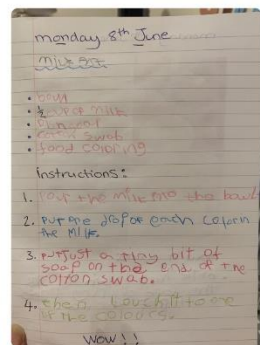 monday 8th June
milk art
• bowl
• ½ cup of milk
•
• cotton swab
• food coloring
instructions:
1. Pour the milk into the bowl
2. Put one drop of each color in
the milk.
3. Put just a tiny bit of
soap on the end of the
cotton swab.
4. then touch it to one
of the colours.
wow!!